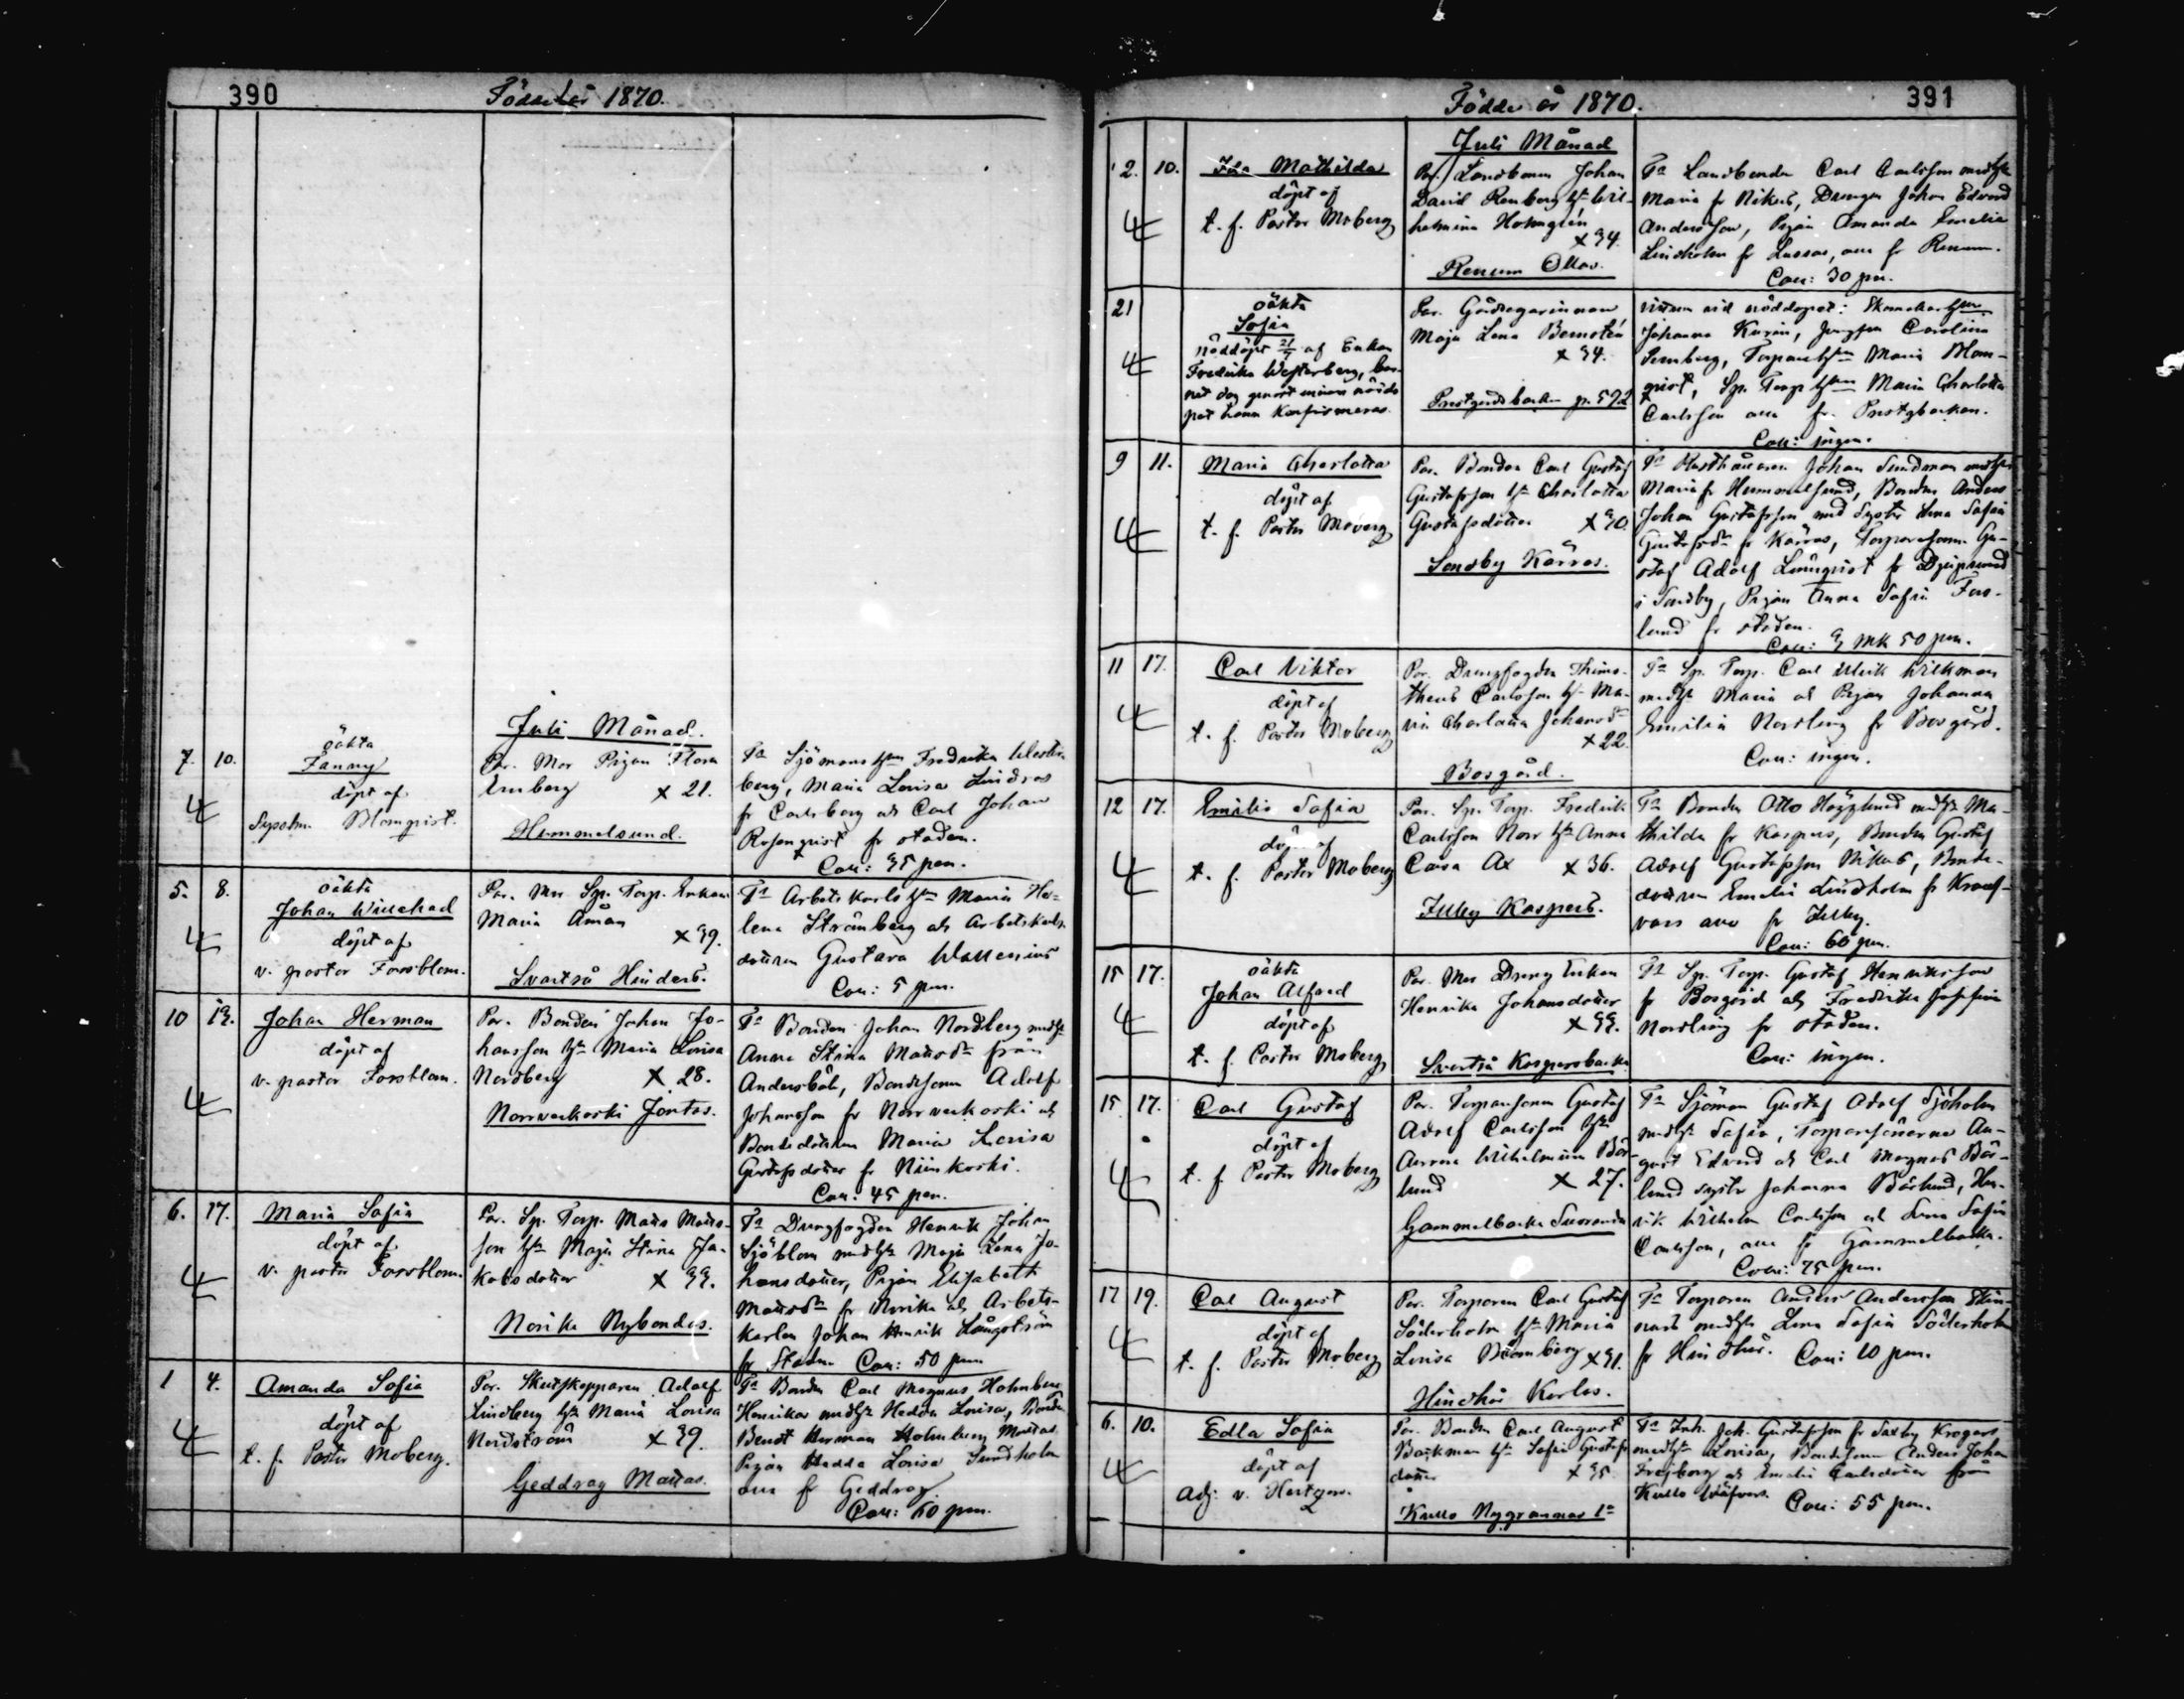 390
Födde år 1870.
Juli Månad.
7. 10.
oäkta
Fanny
döpt af
Blomqvist.
Par. Mor Pigan Flora
Ernberg × 21.
Hummelsund.
Ta Sjömans hu Fredrika Wester-
berg, Maria Lovisa Lindros
fr Carlsberg och Carl Johan
Rosenqvist fr staden.
Coll: 35 pen.
5. 8.
oäkta
Johan Willehad
döpt af
v. pastor Forsblom.
Par. Mor Sp. Torp. Enkan
Maria Åman
× 39.
Svartså Hinders.
Ta Arbetskarls hu Maria He-
lena Strömberg och Arbetskarls
dottren Gustava Wallenius
Coll: 5 pen.
10 13.
Johan Herman
döpt af
v. pastor Forsblom.
Par. Bonden Johan Jo-
hansson hu Maria Lovisa
Nordberg × 28.
Norrveckoski Jontas.
Ta Bonden Johan Nordberg
Anna Stina Mattsdr från
Andersböle, Bondesonen Adolf
Johansson fr Norrveckoski och
Bondedottren Maria Lovisa
Gustafsdotter fr Niinikoski.
Coll: 45 pen.
6. 17.
Maria Sofia
döpt af
v. pastor Forsblom.
Par. Sp. Torp. Matts Matts-
son hu Maja Stina Ja-
kobsdotter × 33.
Norike Nybondas.
Ta Drengfogden Henrik Johan
Sjöblom med hu Maja Lena Jo-
hansdotter, Pigan Elisabeth
Mattsdr fr Norike och Arbets-
karlen Johan Henrik Långström
fr Staden Coll: 50 pen.
1 4.
Amanda Sofia
döpt af
t. f. Pastor Moberg.
Par. Skutskepparen Adolf
Lindberg hu Maria Lovisa
Nordström × 39.
Geddrag Mattas.
Ta Bonden Carl Magnus Holmberg
Henrikas med hu Hedda Lovisa,
Bendt Herman Holmberg Mattas
Pigan Hedda Lovisa Sundholm
alla fr Geddrag.
Coll: 60 pen.
391
Födde år 1870.
Juli Månad
2. 10.
Ida Mathilda
döpt af
t. f. Pastor Moberg
Par. Landbonden Johan
David Renberg hu Wil-
helmina Holmgrén
× 34.
Renum Ollas.
Ta Landbonden Carl Carlsson med hu
Maria fr Nikus, Drengen Johan Edvard
Andersson, Pigan Amanda Emelia
Lindholm fr Lassas, alla fr Renum.
Coll: 30 pen.
21
oäkta
Sofia
nöddöpt 21/7 af Enkan
Fredrika Westerberg, bar-
net dog genast innan nöddo-
pet hann Konfirmeras.
Par. Gårdsegarinnan
Maja Lena Bernstén
× 34.
Prestgårdsbacken p. 592
vittnen vid nöddopet: Skomakar hun
Johanna Kurin, Jungfrun Carolina
Sernberg, Torpare hun Maria Blom-
qvist, Sp. Torp hun Maria Charlotta
Carlsson alla fr. Prestgbacken.
Coll: ingen.
9 11.
Maria Charlotta
döpt af
t. f. Pastor Moberg
Par. Bonden Carl Gustaf
Gustafsson hu Charlotta
Gustafsdotter × 30.
Sondby Kärras.
Ta Rusthållaren Johan Sundman med hu
Maria fr Hummelsund, Bonden Anders
Johan Gustafsson med Syster Lena Sofia
Gustafsdr fr Kärras, Torparesonen Gu-
staf Adolf Lönnqvist fr Djupsund
i Sondby, Pigan Anna Sofia Fors-
lund fr staden.
Coll: 3 mk 50 pen.
11 17.
Carl Viktor
döpt af
t. f. Pastor Moberg
Par. Drengfogden Thimo-
theus Carlsson hu Ma-
ria Charlotta Johansdr
× 22.
Bosgård.
Ta Sp. Torp. Carl Ulrik Wickman
med hu Maria och Pigan Johanna
Emilia Nordling fr Bosgård.
Coll: ingen.
12 17.
Emilia Sofia
döpt af
t. f. Pastor Moberg
Par. Sp. Torp. Fredrik
Carlsson Norr hu Anna
Caisa Ax × 36.
Illby Kaspers.
Ta Bonden Otto Hägglund med hu Ma-
thilda fr Kaspers, Bonden Gustaf
Adolf Gustafsson Nikus, Bonde-
dottren Emelie Lindholm fr
alla fr Illby.
Coll: 60 pen.
15 17.
oäkta
Johan Alfred
döpt af
t. f. Pastor Moberg
Par. Mor Dreng Enkan
Henrika Johansdotter
× 33.
Svartså Kaspersbacka
Ta Sp. Torp. Gustaf Henriksson
fr Bosgård och Fredrika Josefina
Nordling fr staden.
Coll: ingen.
15 17.
Carl Gustaf
döpt af
t. f. Pastor Moberg
Par. Torparesonen Gustaf
Adolf Carlsson hu
Aurora Wilhelmina Bär-
lund × 27.
Gammelbacka Suoranda
Ta Sjöman Gustaf Adolf Sjöholm
med hu Sofia, Torparesönerna Au-
gust Edvard och Carl Magnus Bär-
lund syster Johanna Bärlund, Hen-
rik Wilhelm Carlsson och Lena Sofia
Carlsson, alla fr Gammelbacka.
Coll: 75 pen.
17 19.
Carl August
döpt af
t. f. Pastor Moberg
Par. Torparen Carl Gustaf
Söderholm hu Maria
Lovisa Blomberg × 31.
Hindhår Karlas.
Ta Torparen Anders Andersson
med hu Lena Sofia Söderholm
fr Hindhår. Coll: 10 pen.
6. 10.
Edla Sofia
döpt af
Adj. v. Hertzen.
Par. Bonden Carl August
Backman hu Sofia Gustafs-
dotter × 35.
Kullo Nygrannas 1a
Ta Inh. Joh. Gustafsson fr Saxby Krogars
med hu Lovisa, Bondesonen Anders Johan
Frejborg och Emelie Carlsdotter från
Kullo Wäfvars. Coll: 55 pen.